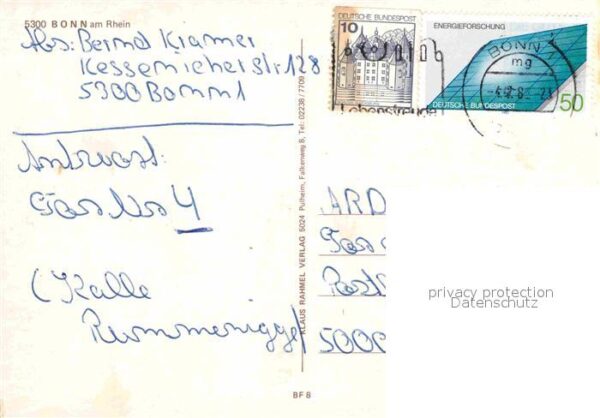 5300 BONN am Rhein
Abs: Bernd Kramer
Kessenicher Str 128
5300 Bonn 1
Antwort:
Tor Nr 4
(Kalle
Rummenigge)
KLAUS RAHMEL VERLAG 5024 Pulheim, Falkenweg 8, Tel: 02238 / 7709
DEUTSCHE BUNDESPOST
10
Lebensfreude
ENERGIEFORSCHUNG
BONN 1
mg
DEUTSCHE BUNDESPOST
50
ARD
Tor
Post
5000
privacy protection
Datenschutz
BF 8